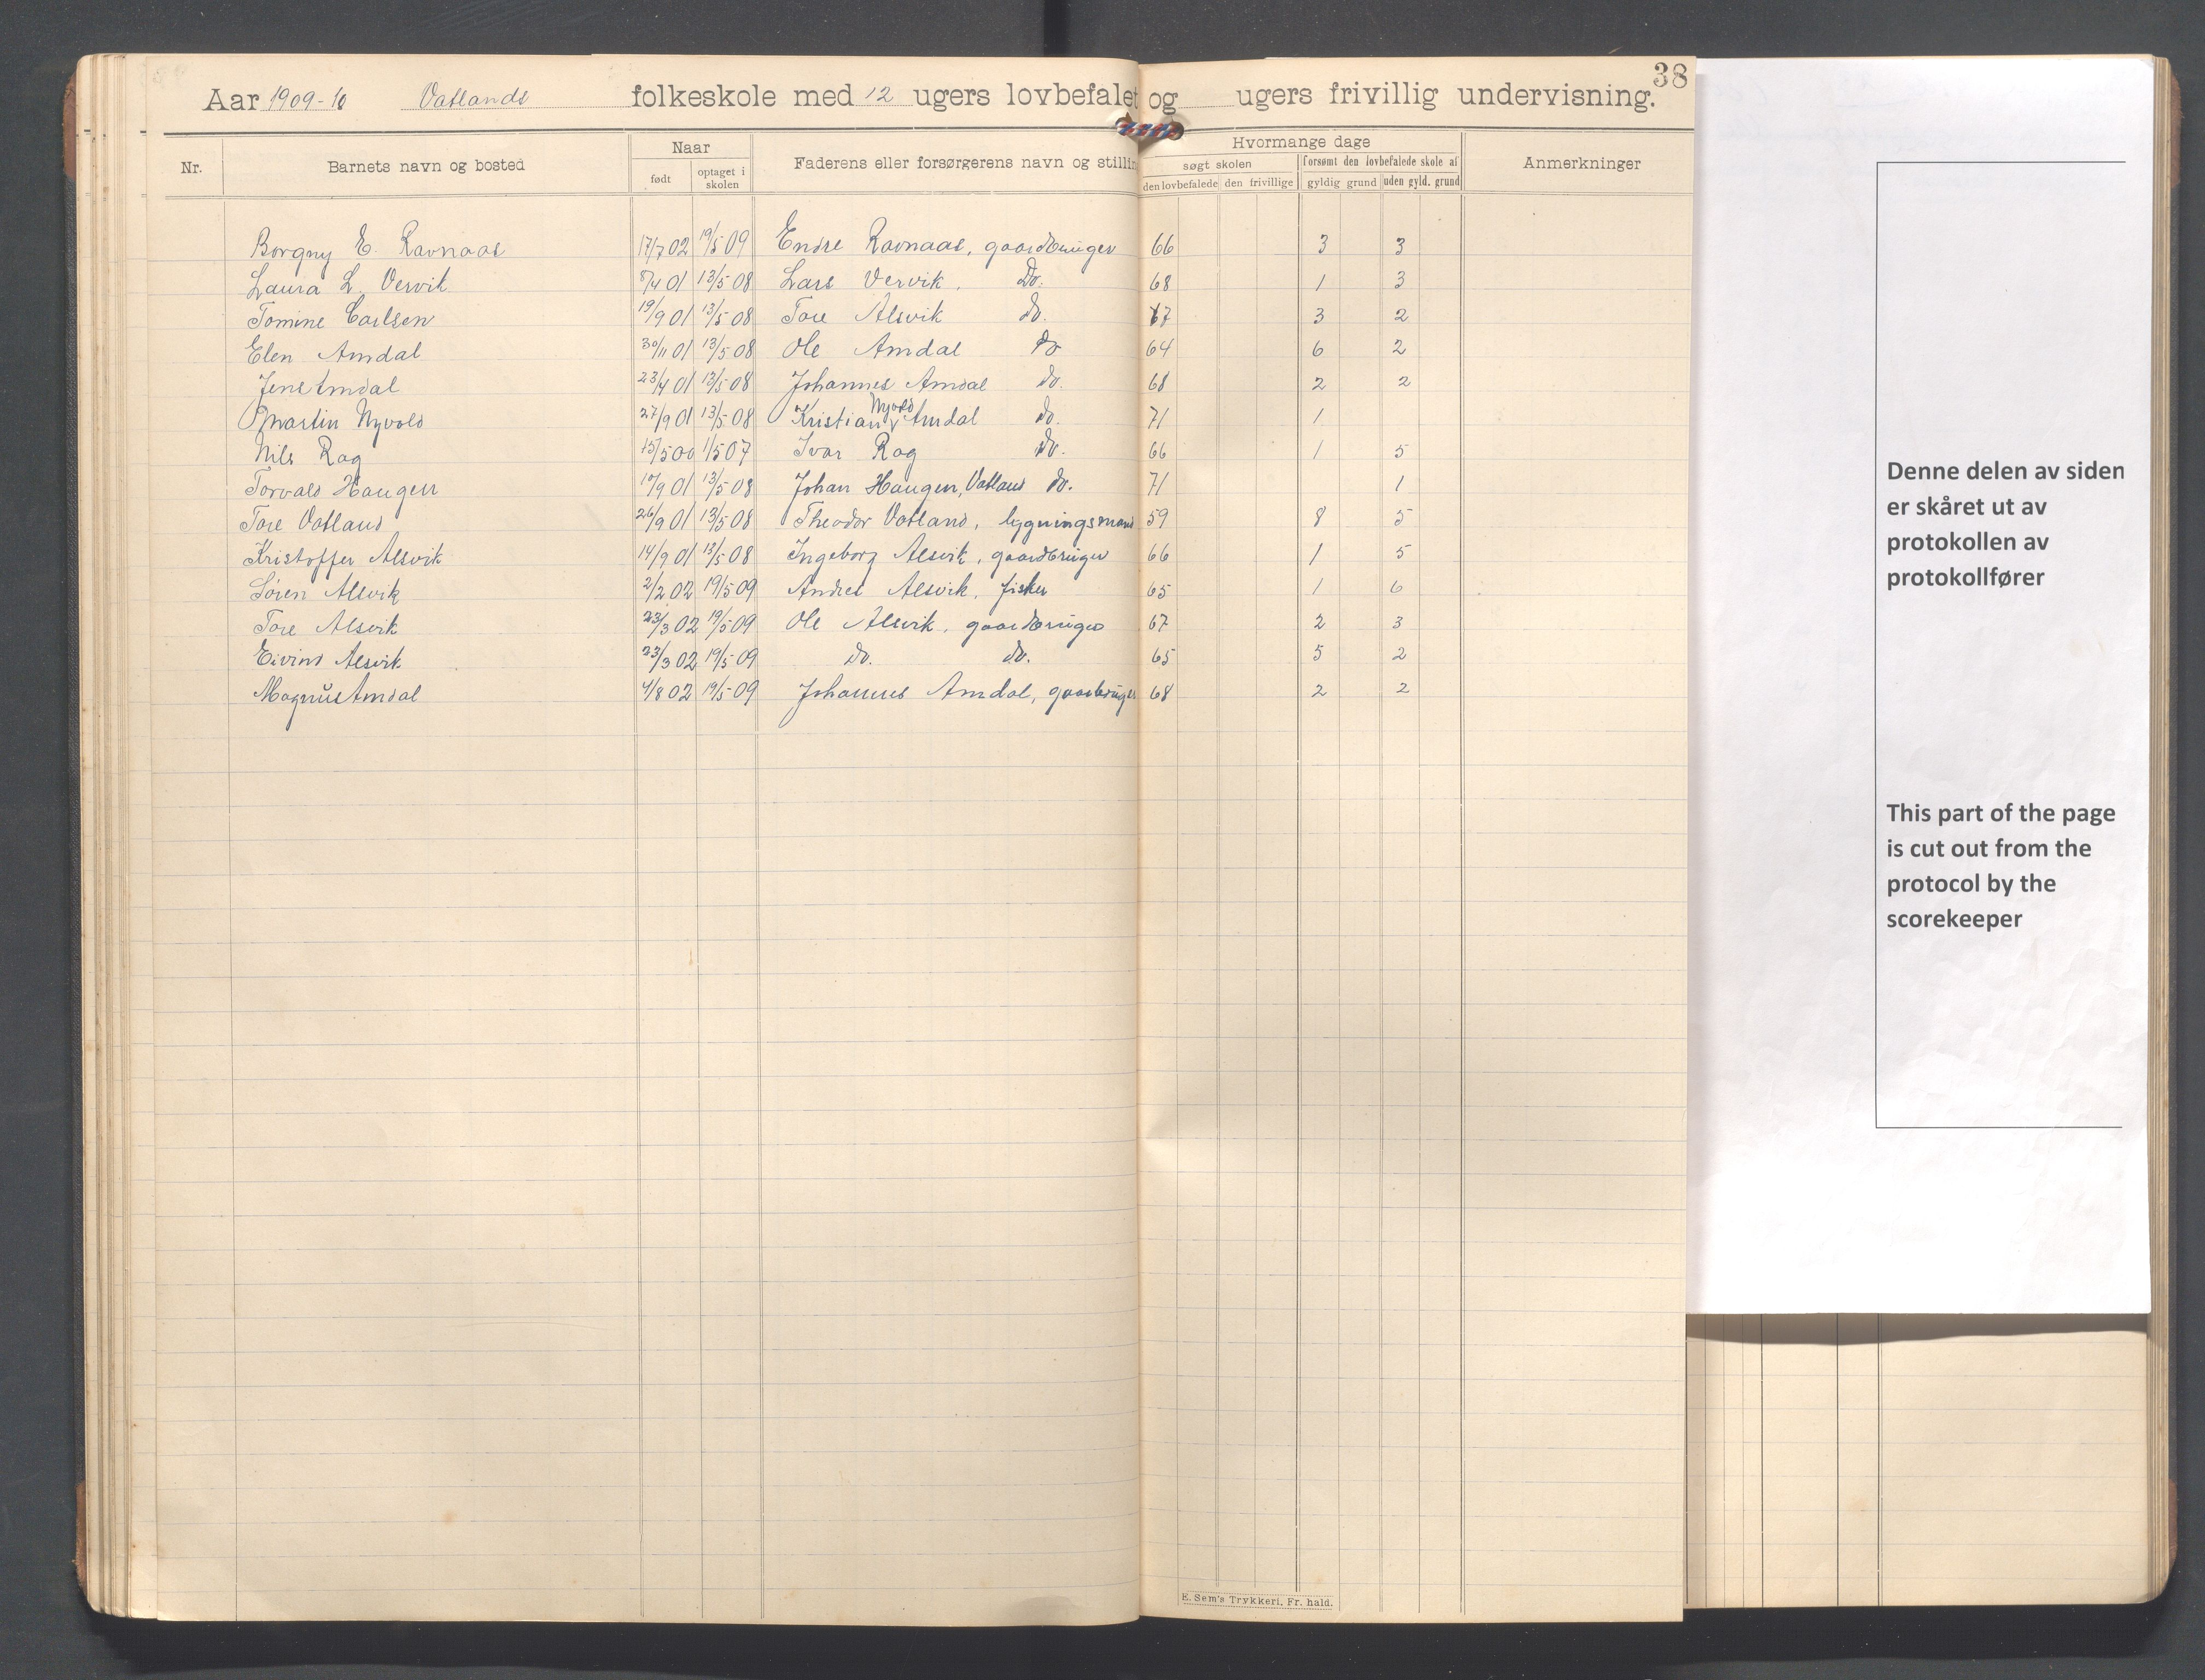 38
Aar 1909-10 Vatlands folkeskole med 12 ugers lovbefalet og ugers frivillig undervisning.
Nr. Barnets navn og bosted Naar født optaget i skolen Faderens eller forsørgerens navn og stillin Hvormange dage søgt skolen den lovbefalede den frivillige forsømt den lovbefalede skole af gyldig grund uden gyld. grund Anmerkninger
Borgny E. Ravnaas 17/7 02 19/5 09 Endre Ravnaas, gaardbruger 66 3 3
Laura L. Vervik 8/4 01 13/5 08 Lars Vervik, Do. 68 1 3
Tomine Carlsen 19/9 01 13/5 08 Tore Alsvik do. 67 3 2
Elen Amdal 30/11 01 13/5 08 Ole Amdal do 64 6 2
Jens Amdal 23/4 01 13/5 08 Johannes Amdal do. 68 2 2
Martin Nyvold 27/9 01 13/5 08 Kristian Nyvold Amdal do. 71 1
Nils Rog 15/5 00 1/5 07 Ivar Rog do. 66 1 5
Torvald Haugen 01 13/5 08 Johan Haugen, Vatland do. 71 1
Tore Vatland 26/9 01 13/5 08 Theodor Vatland, bygningsmand 59 8 5
Kristoffer Alsvik 14/9 01 13/5 08 Ingeborg Alsvik, gaardbruger 66 1 5
Søren Alsvik 2/2 02 19/5 09 Andres Alsvik, fisker 65 1 6
Tore Alsvik 23/3 02 19/5 09 Ole Alsvik, gaardbruger 67 2 3
Eivind Alsvik 23/3 02 19/5 09 do. do. 65 5 2
Magnus Amdal 4/8 02 19/5 09 Johannes Amdal, gaardbruger 68 2 2
E. Sem's Trykkeri, Fr. hald.
Denne delen av siden
er skåret ut av
protokollen av
protokollfører
This part of the page
is cut out from the
protocol by the
scorekeeper